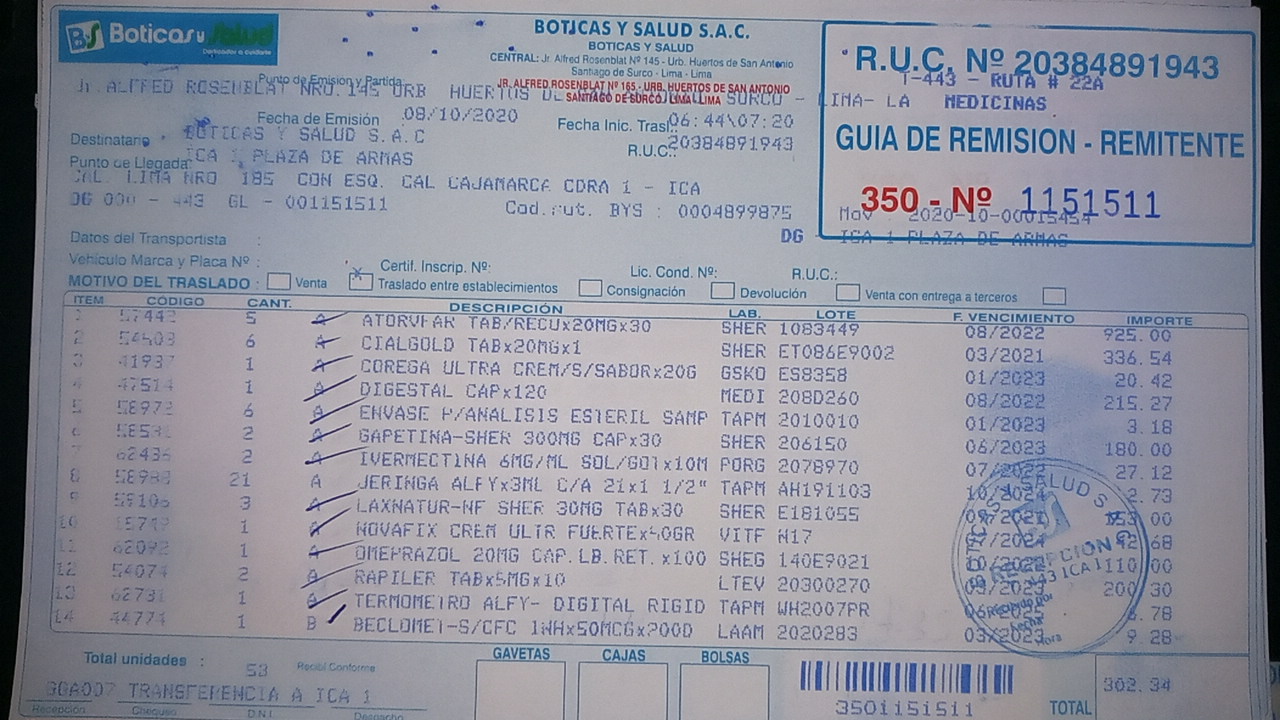 BS Boticas y Salud
Dedicados a cuidarte
BOTICAS Y SALUD S.A.C.
BOTICAS Y SALUD
CENTRAL: Jr. Alfred Rosenblat Nº 145 - Urb. Huertos de San Antonio
Santiago de Surco - Lima - Lima
JR. ALFRED ROSENBLAT Nº 165 - URB. HUERTOS DE SAN ANTONIO
SANTIAGO DE SURCO LIMA LIMA
R.U.C. Nº 20384891943
T-443 - RUTA # 22A
MEDICINAS
GUIA DE REMISION - REMITENTE
350 - Nº 1151511
Mov 2020-10-00015454
DG - ICA 1 PLAZA DE ARMAS
Punto de Emision y Partida
Jr. ALFRED ROSENBLAT NRO. 145 URB HUERTOS DE SURCO - LIMA- LA
Fecha de Emisión 08/10/2020
Fecha Inic. Trasl. 06:44\07:20
Destinatario BOTICAS Y SALUD S.A.C
R.U.C.: 20384891943
Punto de Llegada: ICA 1 PLAZA DE ARMAS
CAL. LIMA NRO 185 CON ESQ. CAL CAJAMARCA CDRA 1 - ICA
DG 000 - 443 GL - 001151511 Cod.rut. BYS : 0004899875
Datos del Transportista :
Vehiculo Marca y Placa Nº : Certif. Inscrip. Nº: Lic. Cond. Nº: R.U.C.:
MOTIVO DEL TRASLADO : Venta X Traslado entre establecimientos Consignación Devolución Venta con entrega a terceros
ITEM CÓDIGO CANT. DESCRIPCIÓN LAB. LOTE F. VENCIMIENTO IMPORTE
1 57442 5 A ATORVFAR TAB/RECUx20MGx30 SHER 1083449 08/2022 925.00
2 54503 6 A CIALGOLD TABx20MGx1 SHER ET086E9002 03/2021 336.54
3 41937 1 A COREGA ULTRA CREM/S/SABORx20G GSKO ES8358 01/2023 20.42
4 47514 1 A DIGESTAL CAPx120 MEDI 208D260 08/2022 215.27
5 58972 6 A ENVASE P/ANALISIS ESTERIL SAMP TAPM 2010010 01/2023 3.18
6 2 A GAPETINA-SHER 300MG CAPx30 SHER 206150 06/2023 180.00
7 62436 2 A IVERMECTINA 6MG/ML SOL/GOTx10M PORG 2078970 07/2022 27.12
8 58980 21 A JERINGA ALFYx3ML C/A 21x1 1/2" TAPM AH191103 10/2024 2.73
9 59106 3 A LAXNATUR-NF SHER 30MG TABx30 SHER E181055
10 1 A NOVAFIX CREM ULTR FUERTEx40GR VITF N17
11 62092 1 A OMEPRAZOL 20MG CAP.LB.RET.x100 SHEG 140E9021
12 54074 2 A RAPILER TABx5MGx10 LTEV 20300270
13 62731 1 A TERMOMETRO ALFY- DIGITAL RIGID TAPM WH2007PR
14 44774 1 B BECLOMET-S/CFC INHx50MCGx200D LAAM 2020283 03/2023 9.28
Total unidades : 53 Recibí Conforme
GAVETAS CAJAS BOLSAS
GGA007 TRANSFERENCIA A ICA 1
Recepción Chequeo D.N.I. Despacho
3501151511
TOTAL 302.34